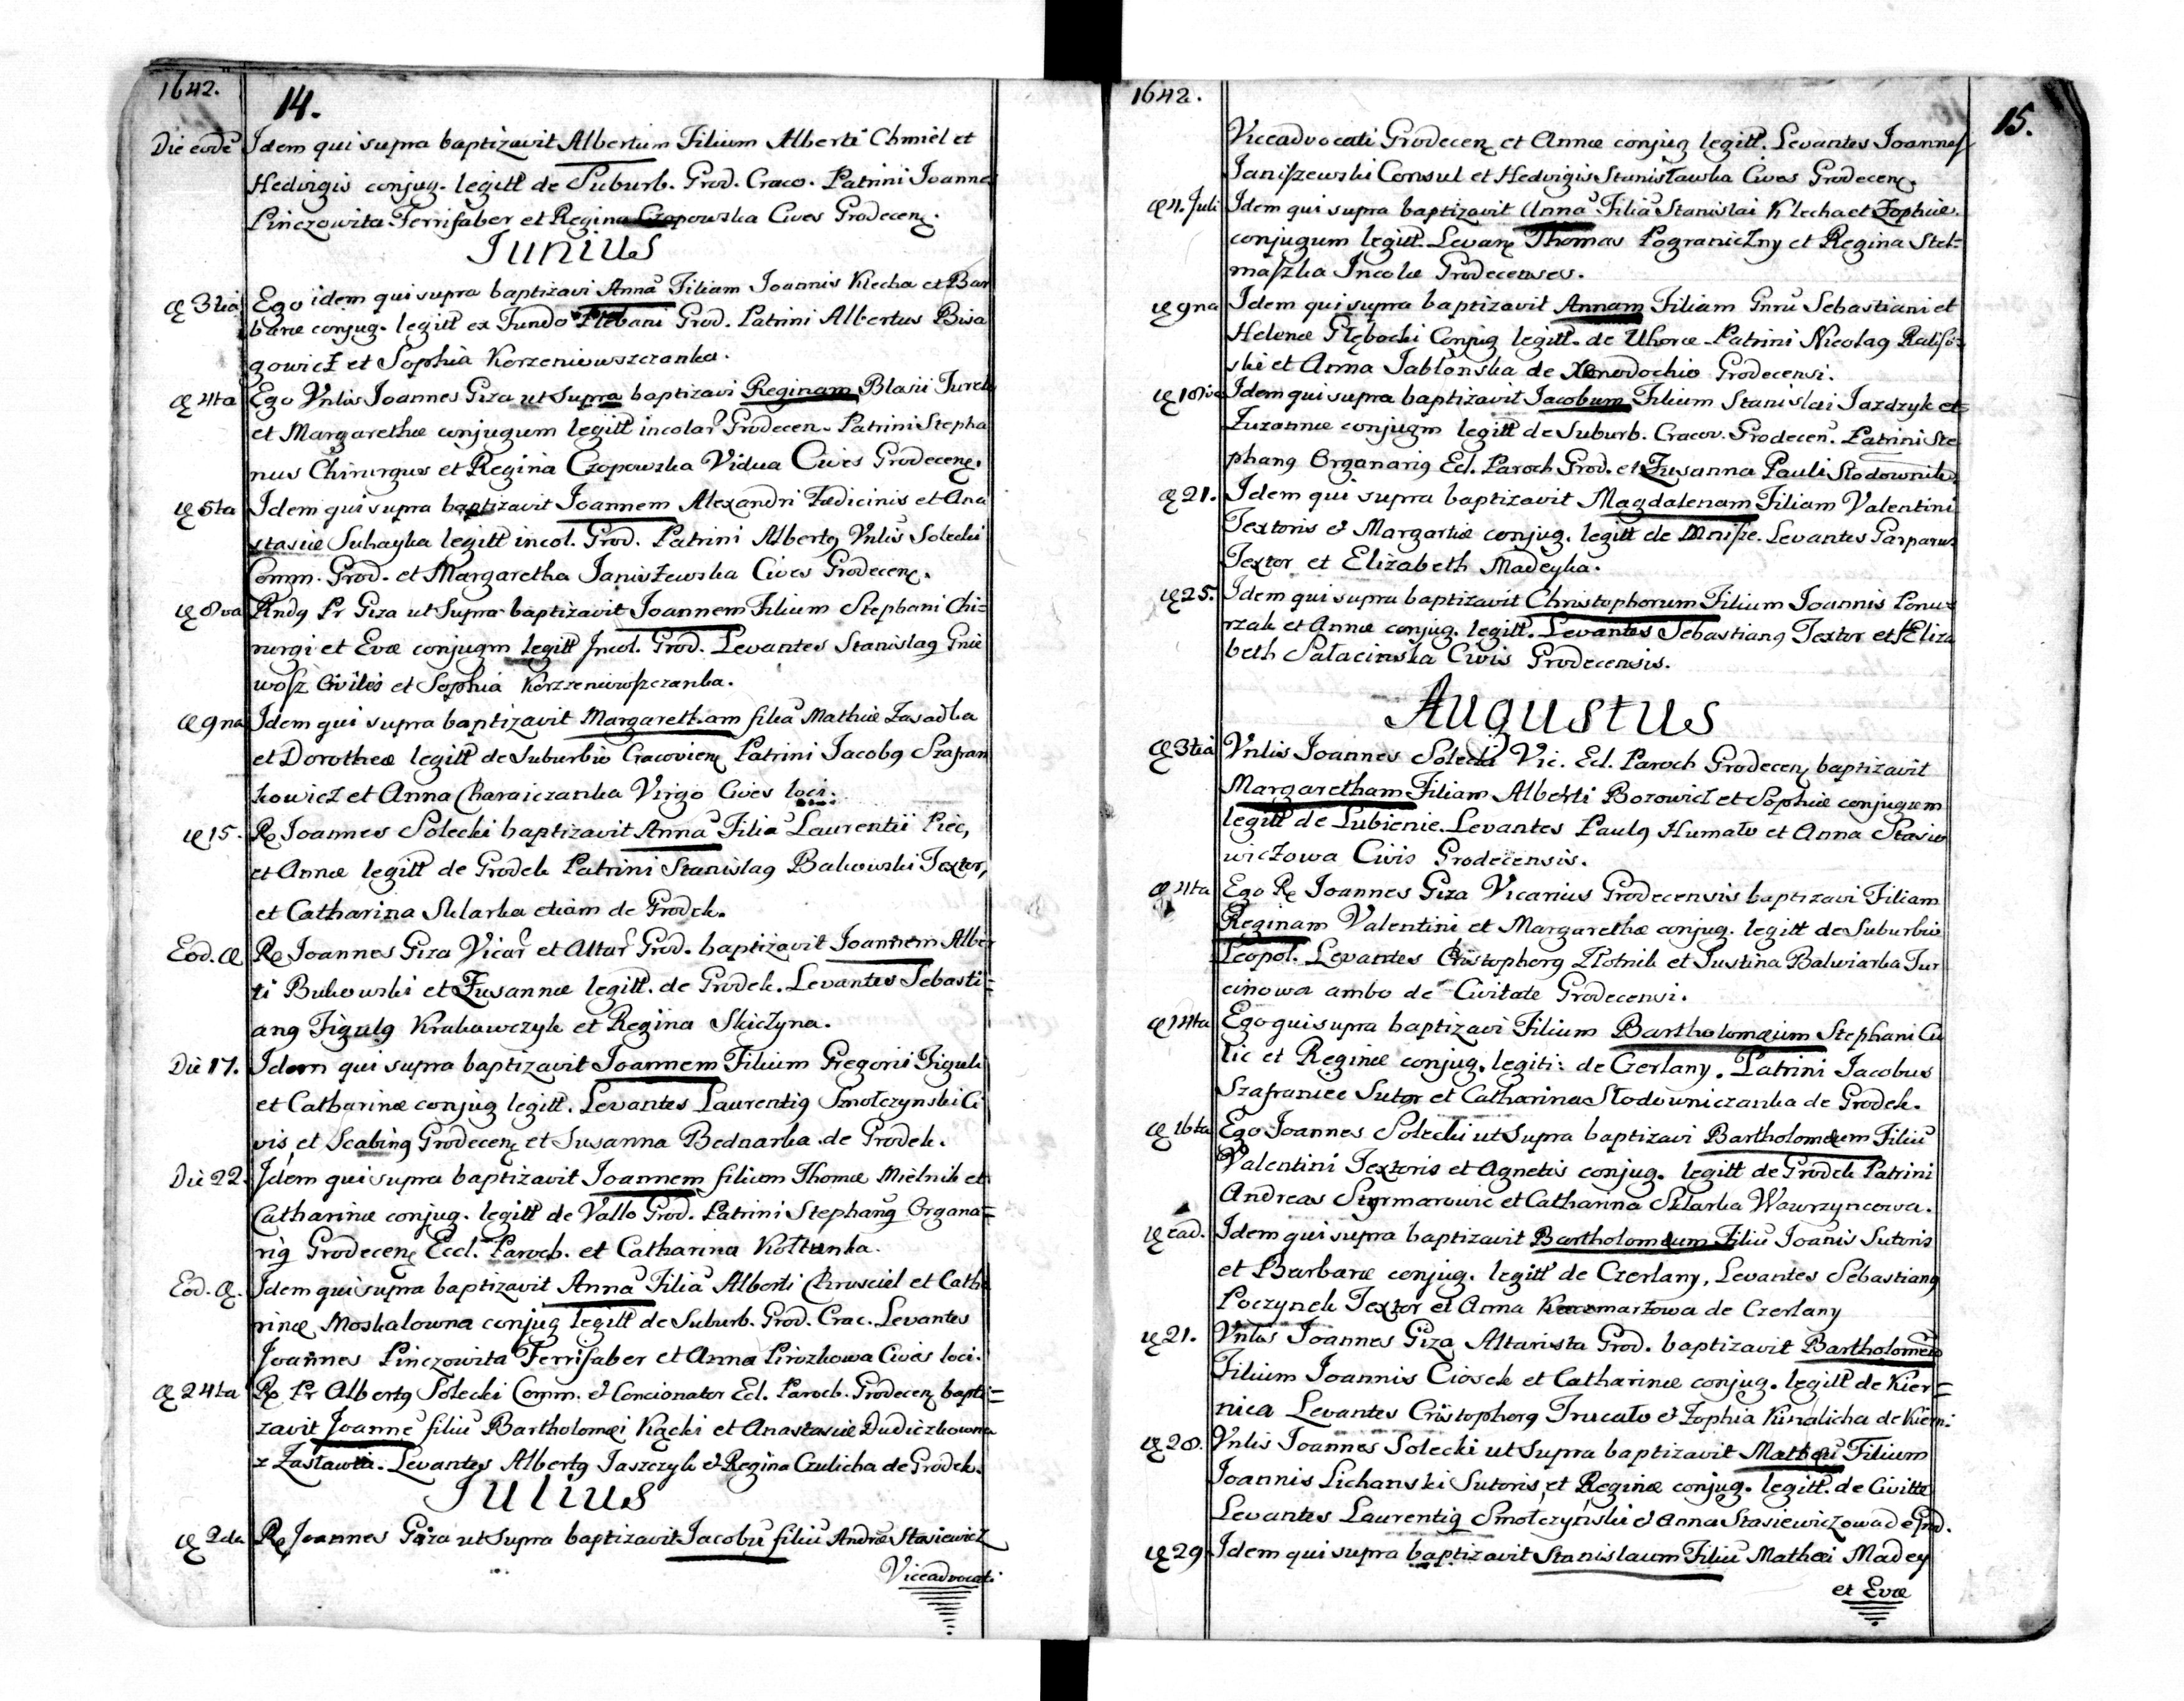 1642.
14.
Die eodē Idem qui supra baptizavit Albertum Filium Alberti Chmiel et
Hedvigis conjug. legitt de Suburb. Grod. Craco. Patrini Joannes
Pinczowita Ferrifaber et Regina Czopowska Cives Grodecenę.
Junius
Ę 3tiâ Ego idem qui supra baptizavi Annã Filiam Joannis Klecha et Bar
baræ conjug. legitt ex Fundo Plebani Grod. Patrini Albertus Bisa
gowicz et Sophia Korzeniowszczanka.
Ę 4ta Ego Vnlis Joannes Giza ut Supra baptizavi Reginam Blasii Turek
et Margarethæ conjugum legitt incolar̃ Grodecen. Patrini Stepha
nus Chirurgus et Regina Czopowska Vidua Cives Grodecenę.
Ę 5ta Idem qui supra baptizavit Joannem Alexandri Pædicinis et Ana
stasiæ Suhayka legitt incol. Grod. Patrini Albertꝯ Vnlis Solecki
Comm. Grod. et Margaretha Janiszewska Cives Grodecenę.
Ę 8va Rndꝯ Pr Giza ut Supra baptizavit Joannem Filium Stephani Chi=
rurgi et Evæ conjugm legitt Incol. Grod. Levantes Stanislaꝯ Gnie
wosz Civilis et Sophia Korzeniowszczanka.
Ę 9na Idem qui supra baptizavit Margaretham filiã Mathiæ Zasadka
et Dorotheæ legitt de Suburbio Cracovienę Patrini Jacobꝯ Szafran
kowicz et Anna Charaiczanka Virgo Cives loci.
Ę 15. Rę Joannes Solecki baptizavit Annã Filiã Laurentii Piec,
et Annæ legitt de Grodek Patrini Stanislaꝯ Bakowski Textor,
et Catharina Sklarka etiam de Grodek.
Eod. Ę Rę Joannes Giza Vicar̃ et Altar̃ Grod. baptizavit Joannem Alber
ti Bukowski et Zusannæ legitt. de Grodek. Levantes Sebasti=
anꝯ Figulꝯ Krakawczyk et Regina Skiczyna.
Die 17. Idem qui supra baptizavit Joannem Filium Gregorii Figuli
et Catharinæ conjug legitt. Levantes Laurentiꝯ Smolczynski Ci
vis, et Scabinꝯ Grodecenę et Susanna Bednarka de Grodek.
Die 22. Idem qui supra baptizavit Joannem filium Thomæ Mielnik et
Catharinæ conjug. legitt de Vallo Grod. Patrini Stephanꝯ Organa=
riꝯ Grodecenę Eccl. Paroch. et Catharina Kołtunka.
Eod. Ę. Idem qui supra baptizavit Annã Filiã Alberti Chrusciel et Catha
rinæ Moskalowna conjug legitt de Suburb. Grod. Crac. Levantes
Joannes Pinczowita Ferrifaber et Anna Pirozkowa Cives loci.
Ę 24ta Rę Pr Albertꝯ Solecki Comm. et Concionator Ecl. Paroch. Grodecenę bapti=
zavit Joannẽ filiũ Bartholomæi Kącki et Anastasiæ Dudiczkowna
z Zastawia. Levantes Albertꝯ Jaszczyk et Regina Czulicha de Grodek.
Julius
Ę 2da Rę Joannes Giza ut Supra baptizavit Jacobũ filiũ Andreæ Stasiewicz
Viceadvocati
1642.
15.
Viceadvocati Grodecenę et Annæ conjug legitt. Levantes Joannes
Janiszewski Consul et Hedvigis Stanisławska Cives Grodecenę.
Ę 4. Juli Idem qui supra baptizavit Annã Filiã Stanislai Klecha et Zophiæ
conjugum legitt. Levanę Thomas Pograniczny et Regina Stel=
maszka Incolæ Grodecenses.
Ę 9na Idem qui supra baptizavit Annam Filiam Gnrũ Sebastiani et
Helenæ Głębocki Conjug legitt. de Uhorce Patrini Nicolaꝯ Raliso=
ski et Anna Jabłonska de Xenodochio Grodecensi.
Ę 18va Idem qui supra baptizavit Jacobum Filium Stanislai Jazdzyk et
Zuzannæ conjugm legitt de Suburb. Cracov. Grodecen. Patrini Ste
phanꝯ Organariꝯ Ecl. Paroch Grod. et Zusanna Pauli Słodownik.
Ę 21. Idem qui supra baptizavit Magdalenam Filiam Valentini
Textoris et Margartæ conjug. legitt de Mnisze. Levantes Gasparus
Textor et Elizabeth Madeyka.
Ę 25. Idem qui supra baptizavit Christophorum Filium Joannis Ponu=
rzak et Annæ conjug. legitt. Levantes Sebastianꝯ Textor et Eliza
beth Sałacinska Civis Grodecensis.
Augustus
Ę 3tiâ Vnlis Joannes Solecki Vic. Ecl. Paroch Grodecenę baptizavit
Margaretham Filiam Alberti Borowicz et Sophiæ conjugum
legitt de Lubienie. Levantes Paulꝯ Humało et Anna Stasie
wiczowa Civis Grodecensis.
Ę 4ta Ego Rę Joannes Giza Vicarius Grodecensis baptizavi Filiam
Reginam Valentini et Margarethæ conjug. legitt de Suburbio
Leopol. Levantes Christophorꝯ Złotnik et Justina Balwiarka Tur
cinowa ambo de Civitate Grodecensi.
Ę 14ta Ego qui supra baptizavi Filium Bartholomæum Stephani Cu
lic et Reginæ conjug. legiti: de Czerlany. Patrini Jacobus
Szafraniec Sutor et Catharina Słodowniczanka de Grodek.
Ę 16ta Ego Joannes Solecki ut Supra baptizavi Bartholomæum Filiũ
Valentini Textoris et Agnetis conjug. legitt de Grodek Patrini
Andreas Szyrmarowic et Catharina Sklarka Wawrzyncowa.
Ę ead. Idem qui supra baptizavit Bartholomæum Filiũ Joanis Sutoris
et Barbaræ conjug. legitt de Czerlany, Levantes Sebastianꝯ
Poczynek Textor et Anna Kaczmarzowa de Czerlany
Ę 21. Vnlis Joannes Giza Altarista Grod. baptizavit Bartholomeũ
Filium Joannis Ciosek et Catharinæ conjug. legitt de Kier=
nica Levantes Cristophorꝯ Trucało et Zophia Kinalicha de Kierni:
Ę 28. Vnlis Joannes Solecki ut Supra baptizavit Mathæũ Filium
Joannis Lichanski Sutoris, et Reginæ conjug. legitt. de Civitte
Levantes Laurentiꝯ Smolczyński et Anna Stasiewiczowa de Grod.
Ę 29 Idem qui supra baptizavit Stanislaum Filiũ Mathæi Madey
et Evæ